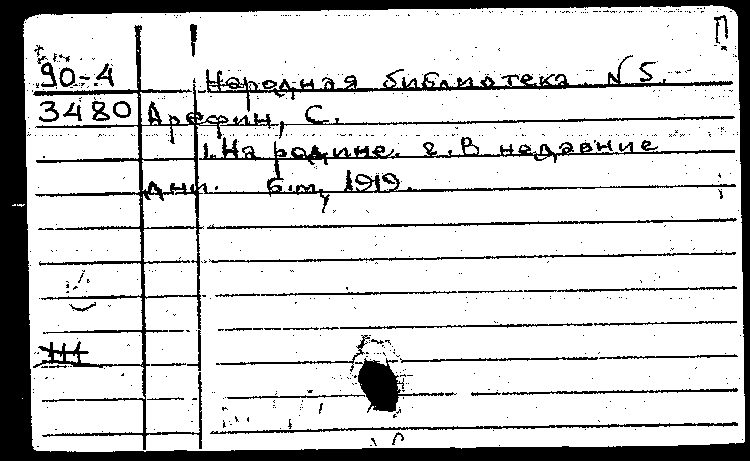 П
90-4 Народная библиотека N 5.
3480 Арефин, С.
1. На родине. 2. В недавние
дни. б.м., 1919.